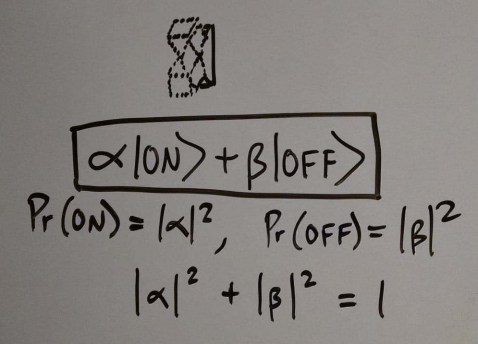 α|ON⟩ + β|OFF⟩
Pr(ON) = |α|², Pr(OFF) = |β|²
|α|² + |β|² = 1